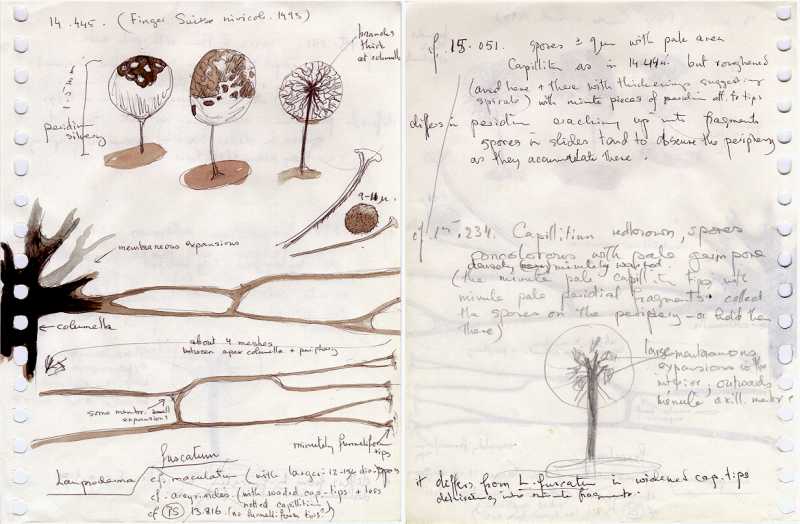 14.445. (Finger Suisse nivicol. 1995)
branches
thick
at columella
1.5 mm
peridium
silvery
9-11 µ.
membraneous expansions
columella
about 4 meshes
between apex columella + periphery
some membr. small
expansions
minutely funneliform
tips
fuscatum
Lamproderma
cf. maculatum (with larger: 12-15µ diam spores
cf. arcyrioides (with cap-tips + less
netted capillitium)
cf (PS) 13.816 (no funneliform tips?)
cf. 15.051. spores ± 9µm with pale area
Capillit. as in 14.494. but roughened
(and here + there with thickenings suggesting
spirals) with minute pieces of peridium att. to tips
differs in peridium cracking up int fragments
spores in slides tend to obscure the periphery
as they accumulate there.
cf .234. Capillitium redbrown, spores
concolorous with pale germ pore
densely minutely warted
(the minute pale capillit. tips with
minute pale peridial fragments. collect
the spores on the periphery - or hold them
there)
large membraneous
expansions in the
interior, outwards
minute axill. membr.
it differs from L. fuscatum in widened cap. tips
dehiscing into minute fragments.